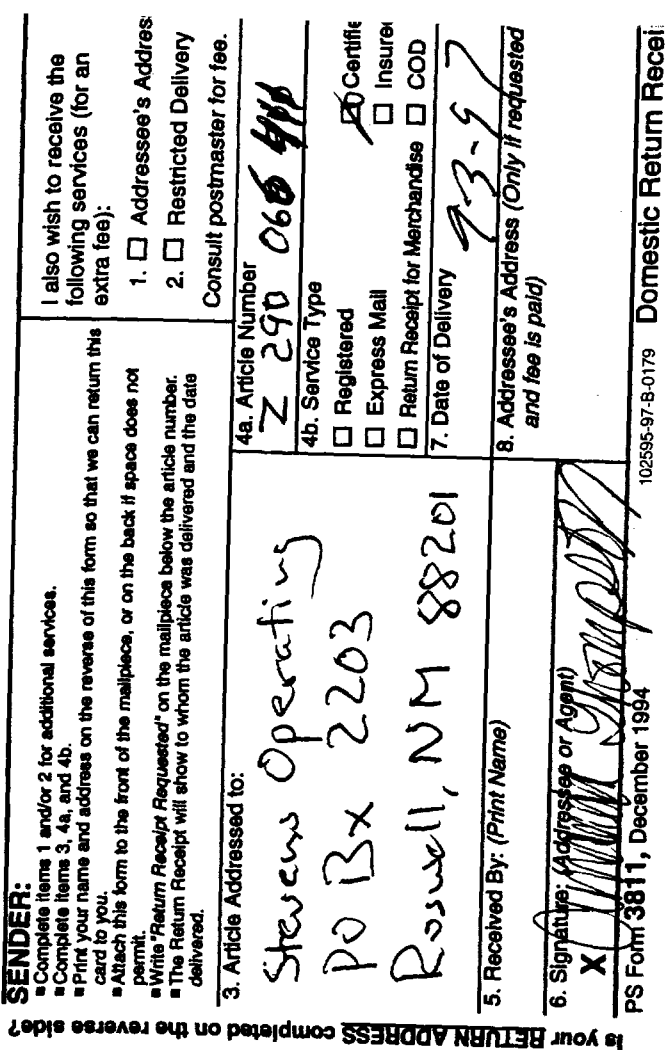 Is your RETURN ADDRESS completed on the reverse side?
SENDER:
■ Complete items 1 and/or 2 for additional services.
■ Complete items 3, 4a, and 4b.
■ Print your name and address on the reverse of this form so that we can return this
card to you.
■ Attach this form to the front of the mailpiece, or on the back if space does not
permit.
■ Write "Return Receipt Requested" on the mailpiece below the article number.
■ The Return Receipt will show to whom the article was delivered and the date
delivered.
I also wish to receive the
following services (for an
extra fee):
1. ☐ Addressee's Addres
2. ☐ Restricted Delivery
Consult postmaster for fee.
3. Article Addressed to:
Stevens Operating
PO Bx 2203
Roswell, NM 88201
4a. Article Number
Z 290 066
4b. Service Type
☐ Registered
☒ Certifie
☐ Express Mail
☐ Insure
☐ Return Receipt for Merchandise
☐ COD
7. Date of Delivery
9-3-97
5. Received By: (Print Name)
8. Addressee's Address (Only if requested
and fee is paid)
6. Signature: (Addressee or Agent)
X Thompson
PS Form 3811, December 1994
102595-97-B-0179
Domestic Return Recei